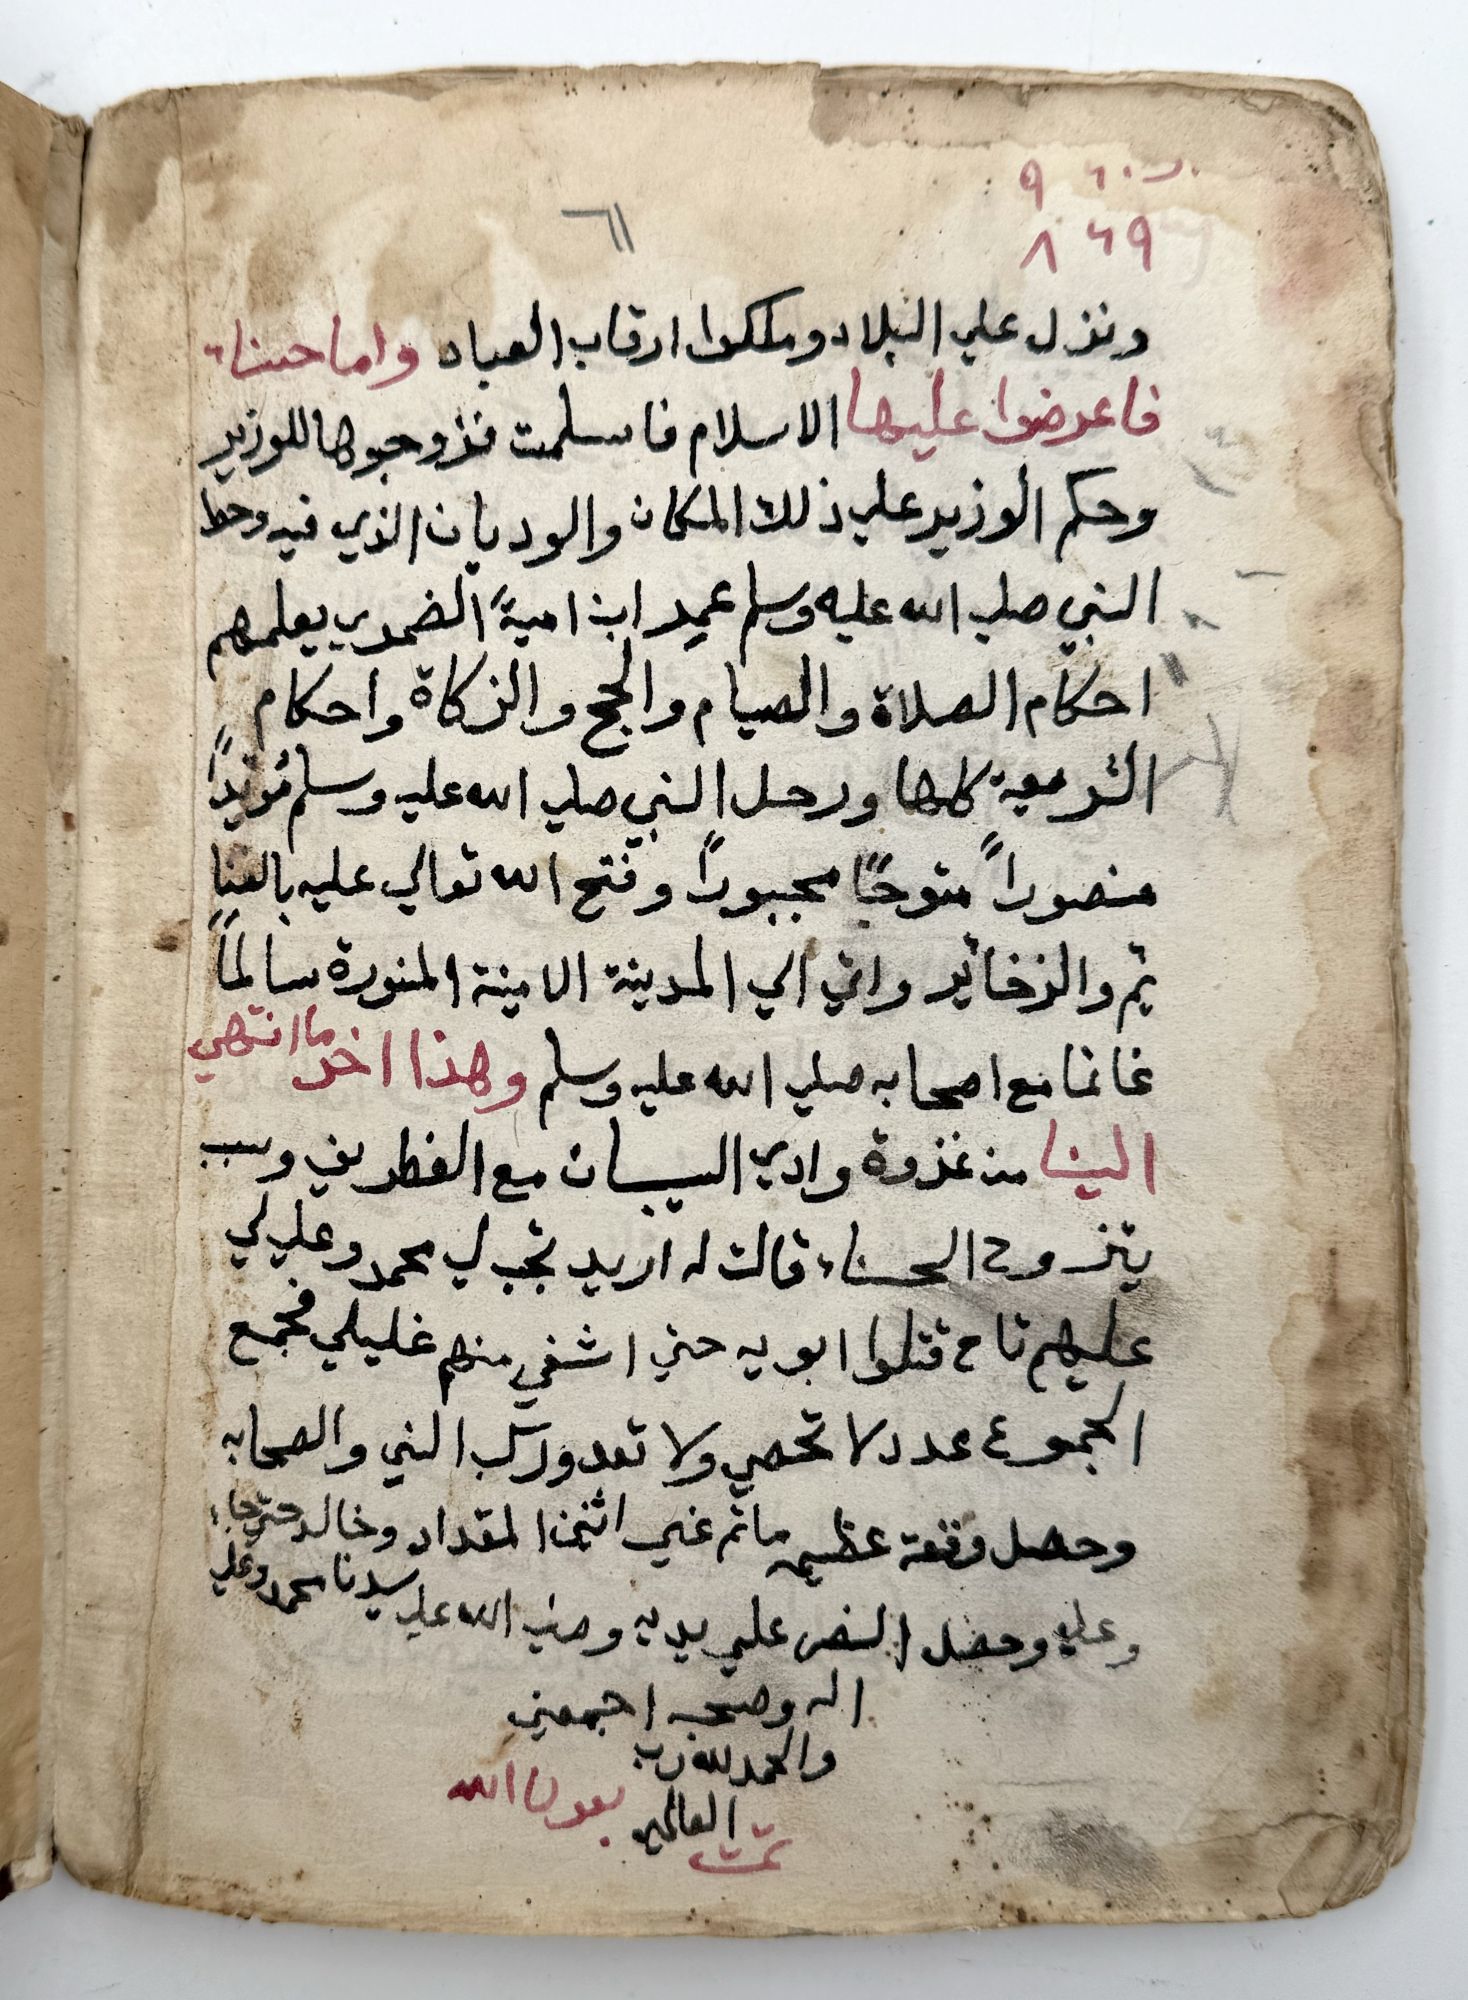 ٦١
٨٤٩
ونزل علي البلاد وملكوا ارقاب العباد واما حسناء
فاعرضوا عليها الاسلام فاسلمت فزوجوها للوزير
وحكم الوزير علي ذلك المكان والوديان الذي فيه وحط
النبي صلي الله عليه وسلم عمير ابن امية الضمدي يعلمهم
احكام الصلاة والصيام والحج والزكاة واحكام
الشريعة كلها ورحل النبي صلي الله عليه وسلم مؤيداً
منصوراً متوجاً مجبوراً وفتح الله تعالي عليه بالغنا
يم والذخائر واتي الي المدينة الامينة المنورة سالماً
غانما مع اصحابه صلي الله عليه وسلم وهذا اخر ما انتهي
الينا من غزوة وادي السيسبان مع الغطريف وسبب
يتزوج الحسناء قالت له اريد تجب لي محمد وعلي لي
عليهم تاح قتلوا ابويه حتي اشفي منهم غليلي فجمع
الجموع عدد لا تحصي ولا تعد وركب النبي والصحابه
وحصل وقعة عظيمه ماتم غير اثنين المقداد وخالد حتي جاء
وعلي وحصل النصر علي يديه وصلي الله علي سيدنا محمد وعلي
اله وصحبه اجمعين
والحمد لله رب
العالمين بعون الله
تمت